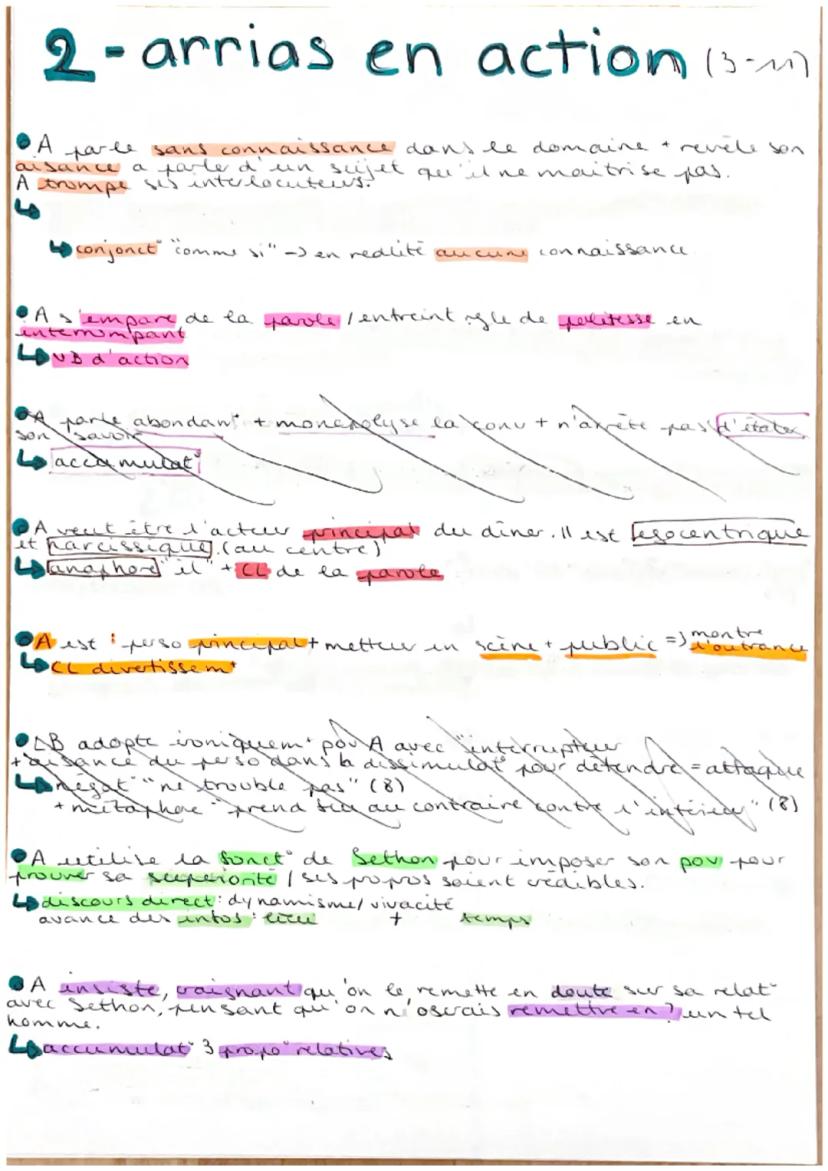 2 - arrias en action (3-11)
A parle sans connaissance dans le domaine + revèle son
aisance a parler d'un sujet qu'il ne maitrise pas.
A trompe ses interlocuteurs.
↳
↳ conjonct° "comme si" -> en réalité aucune connaissance
A s'empare de la parole / entreint règle de politesse en
interrompant
↳ VB d'action
A parle abondant + monopolyse la conv + n'arrête pas d'étaler
son savoir
↳ accumulat°
A veut être l'acteur principal du dîner. Il est egocentrique
et narcissique. (au centre)
↳ anaphore "il" + CL de la parole
A est : perso principal + metteur en scène + public => montre
l'outrance
↳ CL divertissemt
LB adopte ironiquemt pov A avec "interrupteur
+ aisance du perso dans la dissimulat° pour défendre = attaque
↳ négat° "ne trouble pas" (8)
+ métaphore "prend feu au contraire contre l'intérieur" (8)
A utilise la fonct° de Sethon pour imposer son pov pour
prouver sa supériorité / ses propos soient crédibles.
↳ discours direct : dynamisme / vivacité
avance des infos : lieu + temps
A insiste, craignant qu'on le remette en doute sur sa relat°
avec Sethon, pensant qu'on n'oserais remettre en ? un tel
homme.
↳ accumulat° 3 propo° relatives